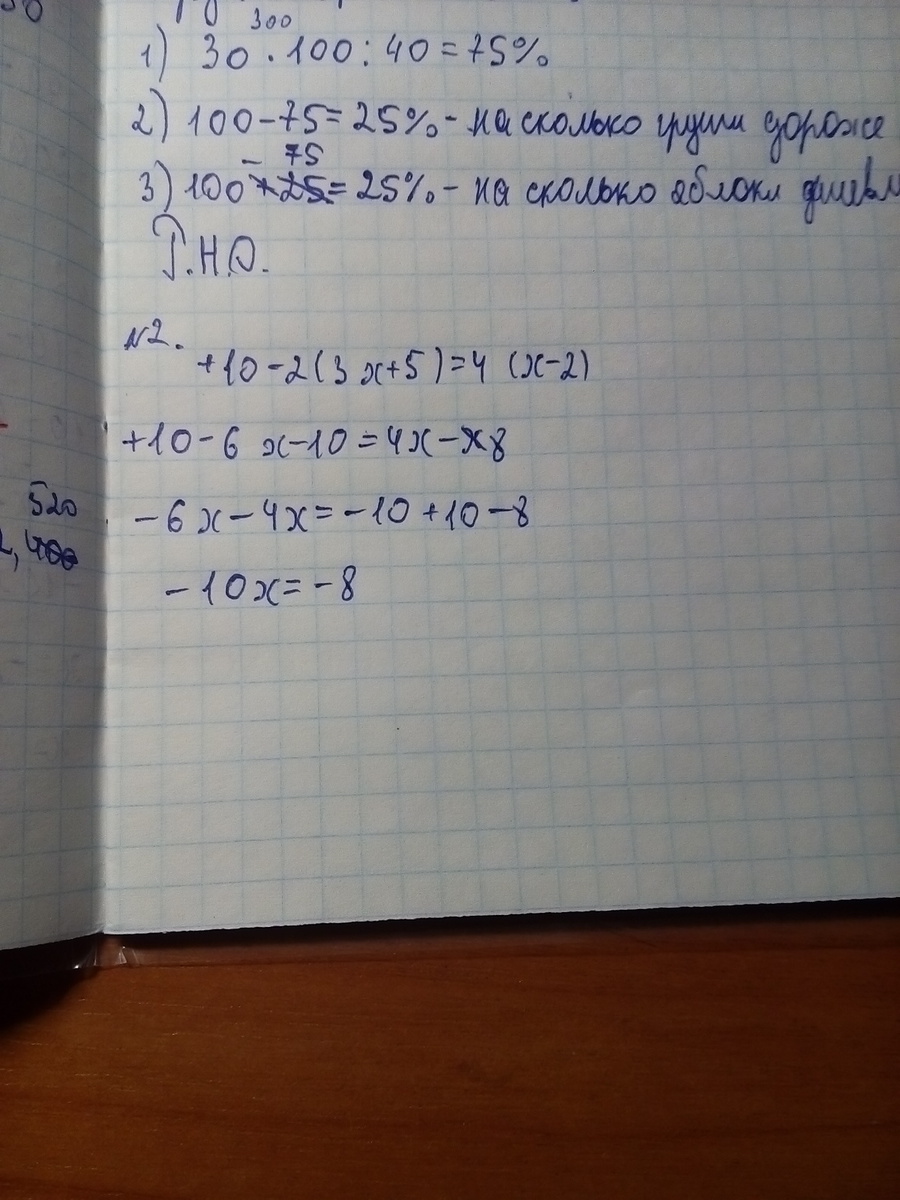 300
1) 30 · 100 : 40 = 75%
2) 100 - 75 = 25% - на сколько груши дороже
- 75
3) 100 + 25 = 25% - на сколько яблоки
Р.Н.О.
№2.
+10-2(3x+5)=4 (x-2)
+10-6x-10=4x-8
520
-6x-4x=-10+10-8
400
-10x=-8